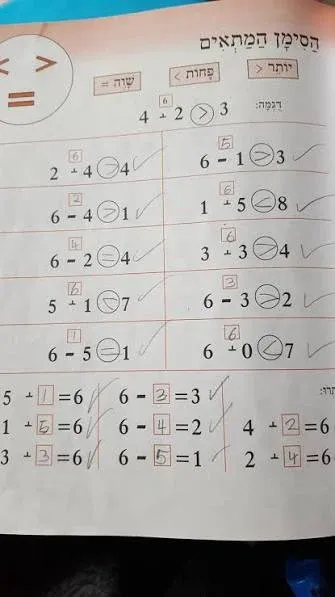 הַסִּימָן הַמַּתְאִים
< > =
יוֹתֵר > פָּחוֹת < שָׁוֶה =
דֻּגְמָה: 6 4 + 2 > 3
5 6 - 1 > 3 ✓
6 2 + 4 > 4 ✓
6 1 + 5 < 8 ✓
2 6 - 4 > 1 ✓
6 3 + 3 > 4 ✓
4 6 - 2 = 4 ✓
3 6 - 3 > 2 ✓
6 5 + 1 < 7 ✓
6 6 + 0 < 7 ✓
1 6 - 5 = 1 ✓
5 + 1 = 6 ✓ 6 - 3 = 3 ✓
1 + 5 = 6 ✓ 6 - 4 = 2 ✓ 4 + 2 = 6
3 + 3 = 6 ✓ 6 - 5 = 1 ✓ 2 + 4 = 6